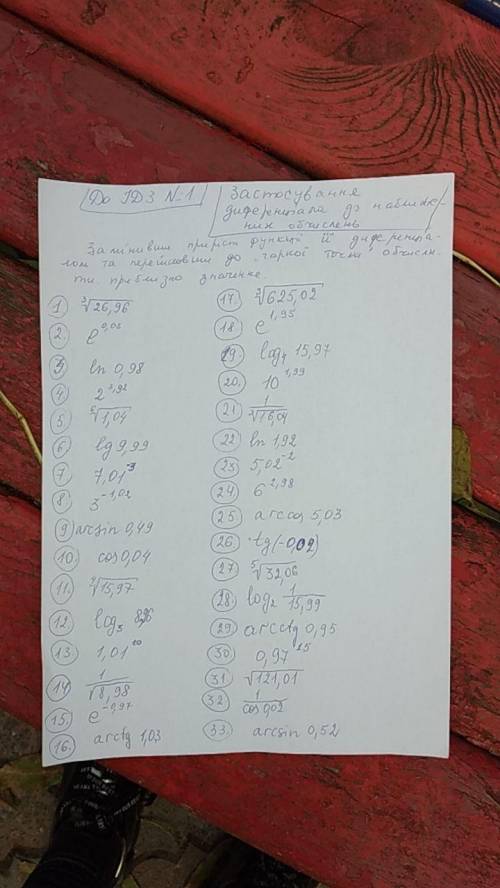 До ІДЗ №1
Застосування
диференціала до наближе-
них обчислень
Замінивши приріст функції її диференціа-
лом та перейшовши до "гаркої" точки, обчисли-
ти приблизно значення.
1. ∛26,96
2. e^0,05
3. ln 0,98
4.
5. ⁶√1,04
6. lg 9,99
7. 7,01^3
8. 3^-1,02
9. arcsin 0,49
10. cos 0,04
11. √15,97
12. log₃
13. 1,01^10
14. 1/√8,98
15. e^-0,97
16. arctg 1,03
17. √625,02
18. e^1,95
19. log₄ 15,97
20. 10^1,99
21. 1/√16,04
22. ln 1,92
23. 5,02^-2
24. 6^2,98
25. arccos 5,03
26. tg(-0,02)
27. ⁵√32,06
28. log₂ 1/15,99
29. arcctg 0,95
30. 0,97^25
31. √121,01
32. 1/cos 0,02
33. arcsin 0,52